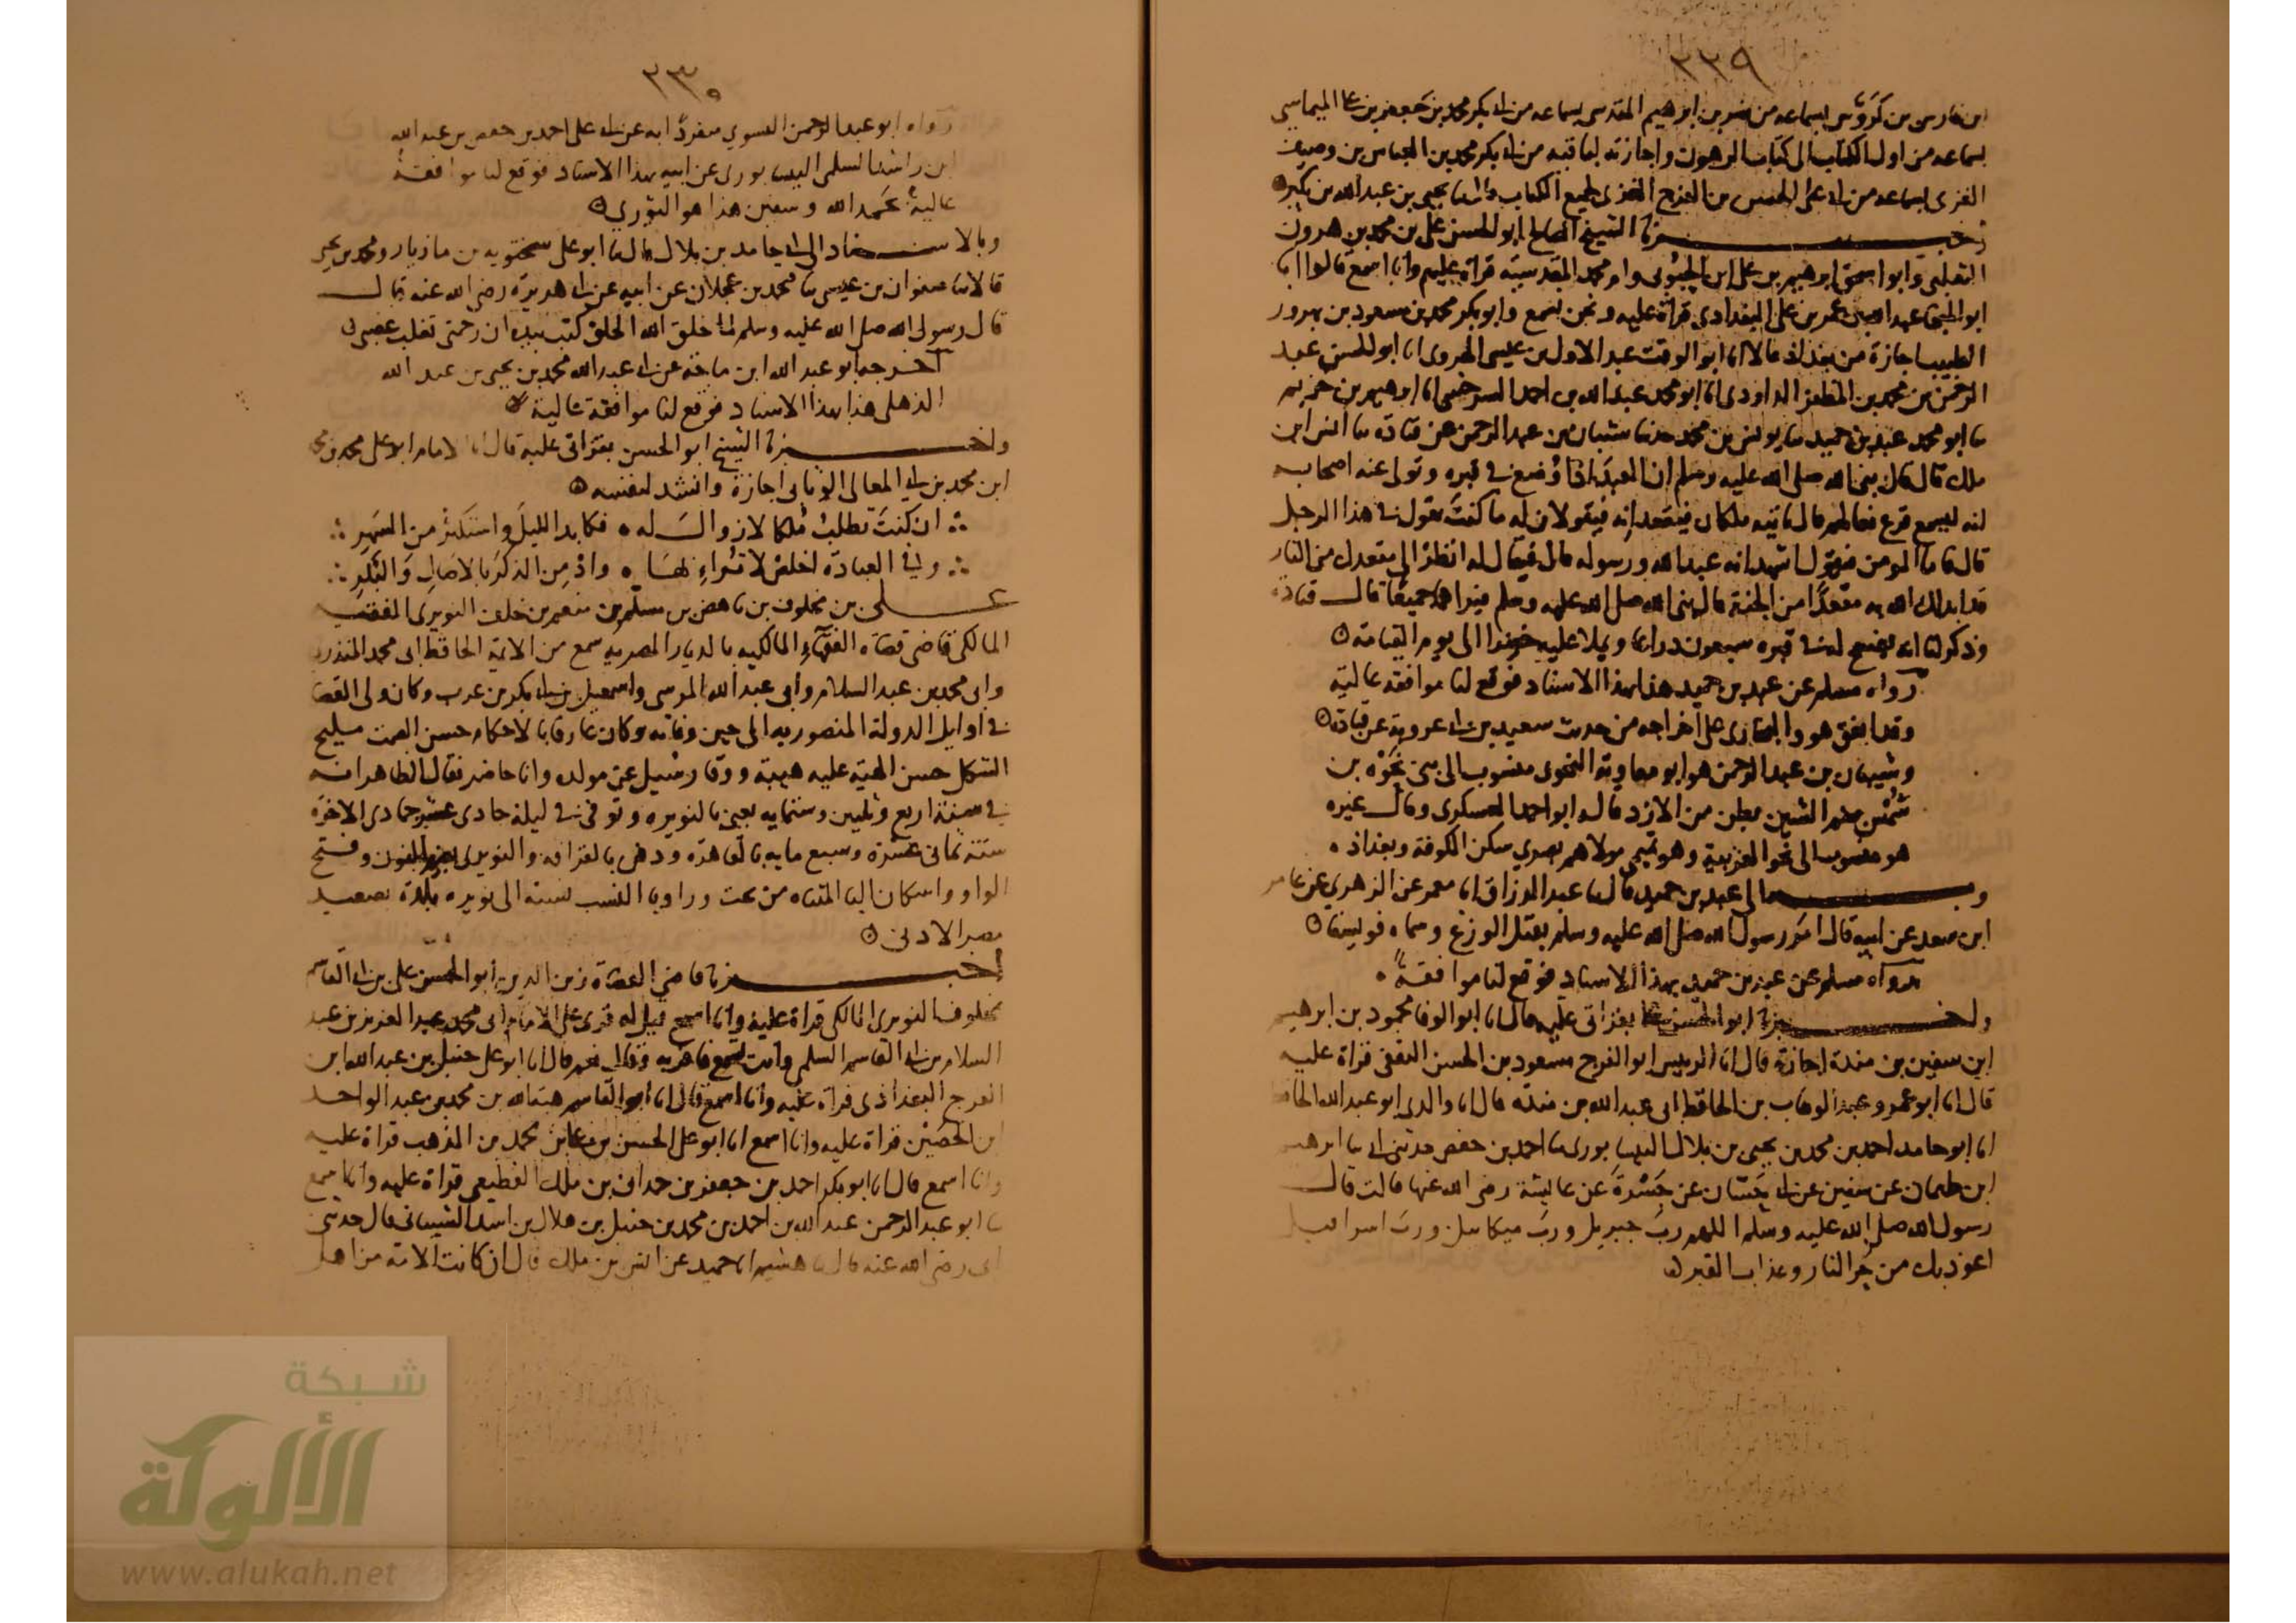 ٢٢٩
ابن فارس بن كروس بسماعه من نصر بن ابرهيم المقدسي بسماعه من ابي بكر محمد بن جعفر بن علي الميماسي
بسماعه من اول الكتاب الى كتاب الرهون واجازته لباقيه من ابي بكر محمد بن العباس بن وصيف
الغزي بسماعه من ابي علي الحسن بن الفرج الغزي لجميع الكتاب انا يحيى بن عبد الله بن بكير
اخبرنا الشيخ الصالح ابو الحسن علي بن محمد بن هرون
الثعلبي وابو اسحق ابرهيم بن علي ابن الحبوبي وام محمد المقدسية قراة عليهم وانا اسمع قالوا انا
ابو المنجا عبد الله بن عمر بن علي البغدادي قراة عليه ونحن نسمع وابو بكر محمد بن مسعود بن بهروز
الطبيب اجازة من بغداذ قالا انا ابو الوقت عبد الاول بن عيسى الهروي انا ابو الحسن عبد
الرحمن بن محمد بن المظفر الداودي انا ابو محمد عبد الله بن احمد السرخسي انا ابرهيم بن خزيم
نا ابو محمد عبد بن حميد نا يونس بن محمد حدثنا شيبان بن عبد الرحمن عن قتادة نا انس ابن
ملك قال قال نبي الله صلى الله عليه وسلم ان العبد اذا وضع في قبره وتولى عنه اصحابه
انه ليسمع قرع نعالهم قال ياتيه ملكان فيقعدانه فيقولان له ما كنت تقول في هذا الرجل
قال فاما المومن فيقول اشهد انه عبد الله ورسوله قال فيقال له انظر الى مقعدك من النار
قد ابدلك الله به مقعدا من الجنة قال نبي الله صلى الله عليه وسلم فيراهما جميعا قال قتادة
وذكر لنا انه يفسح له في قبره سبعون ذراعا ويملا عليه خضرا الى يوم القيامة
رواه مسلم عن عبد بن حميد هذا بهذا الاسناد فوقع لنا موافقة عالية
وقد اتفق هو والبخاري على اخراجه من حديث سعيد بن ابي عروبة عن قتادة
وشيبان بن عبد الرحمن هو ابو معاوية النحوي منسوب الى بني نحوه بن
شمس بضم الشين بطن من الازد قاله ابو احمد العسكري وقال غيره
هو منسوب الى نحو العربية وهو تميمي مولاهم بصري سكن الكوفة وبغداذ
وبه الى عبد بن حميد قال نا عبد الرزاق انا معمر عن الزهري عن عامر
ابن سعد عن ابيه قال امر رسول الله صلى الله عليه وسلم بقتل الوزغ وسماه فويسقا
رواه مسلم عن عبد بن حميد بهذا الاسناد فوقع لنا موافقة
واخبرنا ابو الحسن بقراتي عليه قال انا ابو الوفا محمود بن ابرهيم
ابن سفين بن منده اجازة قال انا الرييس ابو الفرج مسعود بن الحسن الثقفي قراة عليه
قال انا ابو عمرو عبد الوهاب بن الحافظ ابي عبد الله بن منده قال انا والدي ابو عبد الله الحافظ
انا ابو حامد احمد بن محمد بن يحيى بن بلال النيسابوري نا احمد بن حفص حدثني ابي نا ابرهيم
ابن طهمان عن سفين عن ابي حسان عن جسرة عن عايشة رضي الله عنها قالت قال
رسول الله صلى الله عليه وسلم اللهم رب جبريل ورب ميكاييل ورب اسرافيل
اعوذ بك من حر النار وعذاب القبر
٢٣٠
رواه ابو عبد الرحمن النسوي منفردا به عن ابي علي احمد بن حفص بن عبد الله
ابن راشد السلمي النيسابوري عن ابيه بهذا الاسناد فوقع لنا موافقة
عالية بحمد الله وسفين هذا هو الثوري
وبالاسناد الى ابي حامد بن بلال قال نا ابو علي سختويه بن مازيار ومحمد بن يحيى
قالا نا صفوان بن عيسى نا محمد بن عجلان عن ابيه عن ابي هريرة رضي الله عنه قال
قال رسول الله صلى الله عليه وسلم لما خلق الله الخلق كتب بيده ان رحمتي تغلب غضبي
اخرجه ابو عبد الله ابن ماجة عن ابي عبد الله محمد بن يحيى بن عبد الله
الذهلي هذا بهذا الاسناد فوقع لنا موافقة عالية
واخبرنا الشيخ ابو الحسن بقراتي عليه قال انا الامام ابو علي محمد بن محمد
ابن محمد بن ابي المعالي الوثابي اجازة وانشد لنفسه
ان كنت تطلب ملكا لا زوال له ۰ فكابد الليل واستكثر من السهر
وفي العبادة اخلص لا تراء بها ۰ واذمن الذكر بالاصال والبكر
علي بن مخلوف بن ناهض بن مسلم بن منعم بن خلف النويري الفقيه
المالكي قاضي قضاة الفقهاء المالكيه بالديار المصريه سمع من الايمة الحافظ ابي محمد المنذري
وابي محمد بن عبد السلام وابي عبد الله المرسي واسمعيل بن ابي بكر بن عرب وكان ولي القضا
في اوايل الدولة المنصوريه الى حين وفاته وكان عارفا بالاحكام حسن السمت مليح
الشكل حسن الهيئة عليه هيبة ووقار سيل عن مولده وانا حاضر فقال الظاهر انه
في سنة اربع وثلثين وستمايه يعني بالنويره وتوفي في ليلة حادي عشر جمادى الاخره
سنة ثماني عشرة وسبع مايه بالقاهرة ودفن بالقرافه والنويري بضم النون وفتح
الواو واسكان اليا المثناه من تحت ورا ويا النسب نسبه الى نويره بلدة بصعيد
مصر الادنى
اخبرنا قاضي القضاة زين الدين ابو الحسن علي بن ابي القاسم
مخلوف النويري المالكي قراة عليه وانا اسمع قيل له قرى على الامام ابي محمد عبد العزيز بن عبد
السلام بن ابي القاسم السلمي وانت تسمع فاقر به وقال نعم قال انا ابو علي حنبل بن عبد الله ابن
الفرج البغداذي قراة عليه وانا اسمع قال انا ابو القاسم هبة الله بن محمد بن عبد الواحد
ابن الحصين قراة عليه وانا اسمع انا ابو علي الحسن بن علي بن محمد بن المذهب قراة عليه
وانا اسمع قال انا ابو بكر احمد بن جعفر بن حمدان بن ملك القطيعي قراة عليه وانا اسمع
نا ابو عبد الرحمن عبد الله بن احمد بن محمد بن حنبل بن هلال بن اسد الشيباني قال حدثني
ابي رضي الله عنه قال نا هشيم انا حميد عن انس بن ملك قال ان كانت الامة من اهل
شبكة
الألوكة
www.alukah.net